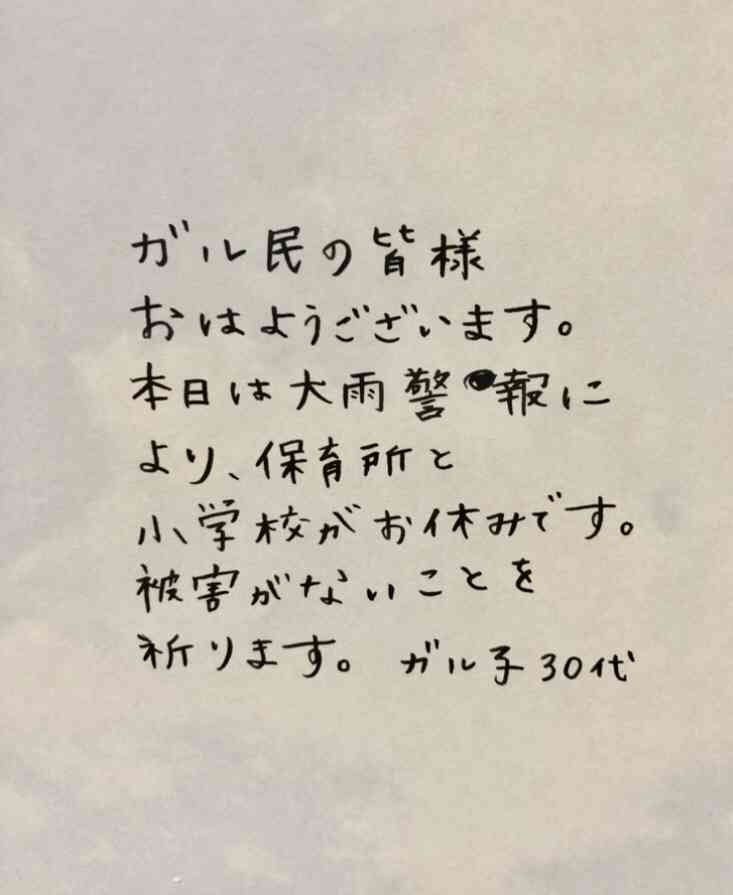 ガル民の皆様
おはようございます。
本日は大雨警報に
より、保育所と
小学校がお休みです。
被害がないことを
祈ります。 ガル子30代